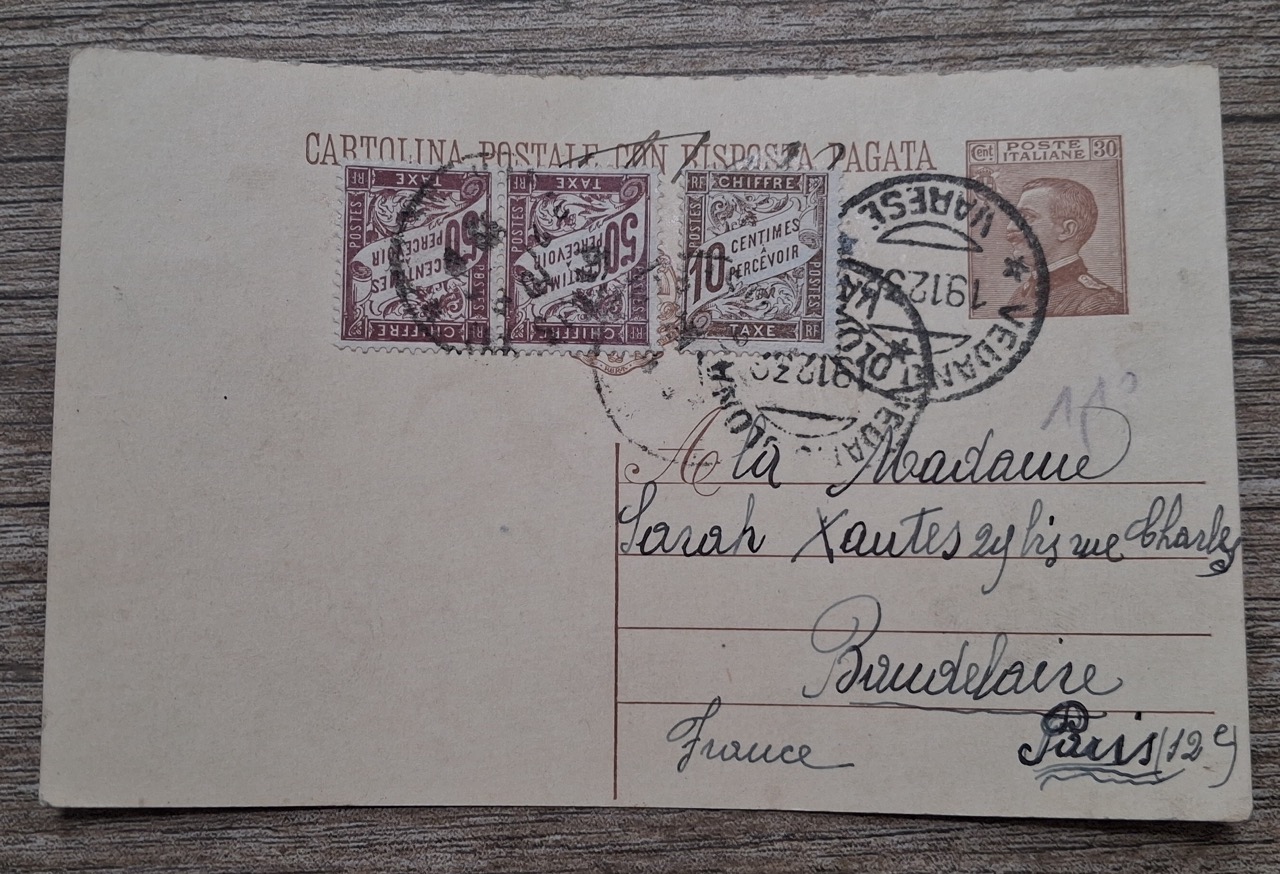 CARTOLINA POSTALE CON RISPOSTA PAGATA
Cent POSTE ITALIANE 30
TAXE
RF
POSTES
50 CENTIMES À PERCEVOIR
POSTES
CHIFFRE
RF
TAXE
RF
POSTES
50 CENTIMES À PERCEVOIR
POSTES
CHIFFRE
RF
RF CHIFFRE
POSTES
10 CENTIMES À PERCEVOIR
POSTES
TAXE RF
VARESE
VEDANO OLONA
19.12.3
VEDANO OLONA
19.12.30
A la Madame
Sarah Xantes 29 bis rue Charles
Baudelaire
France Paris (12e)